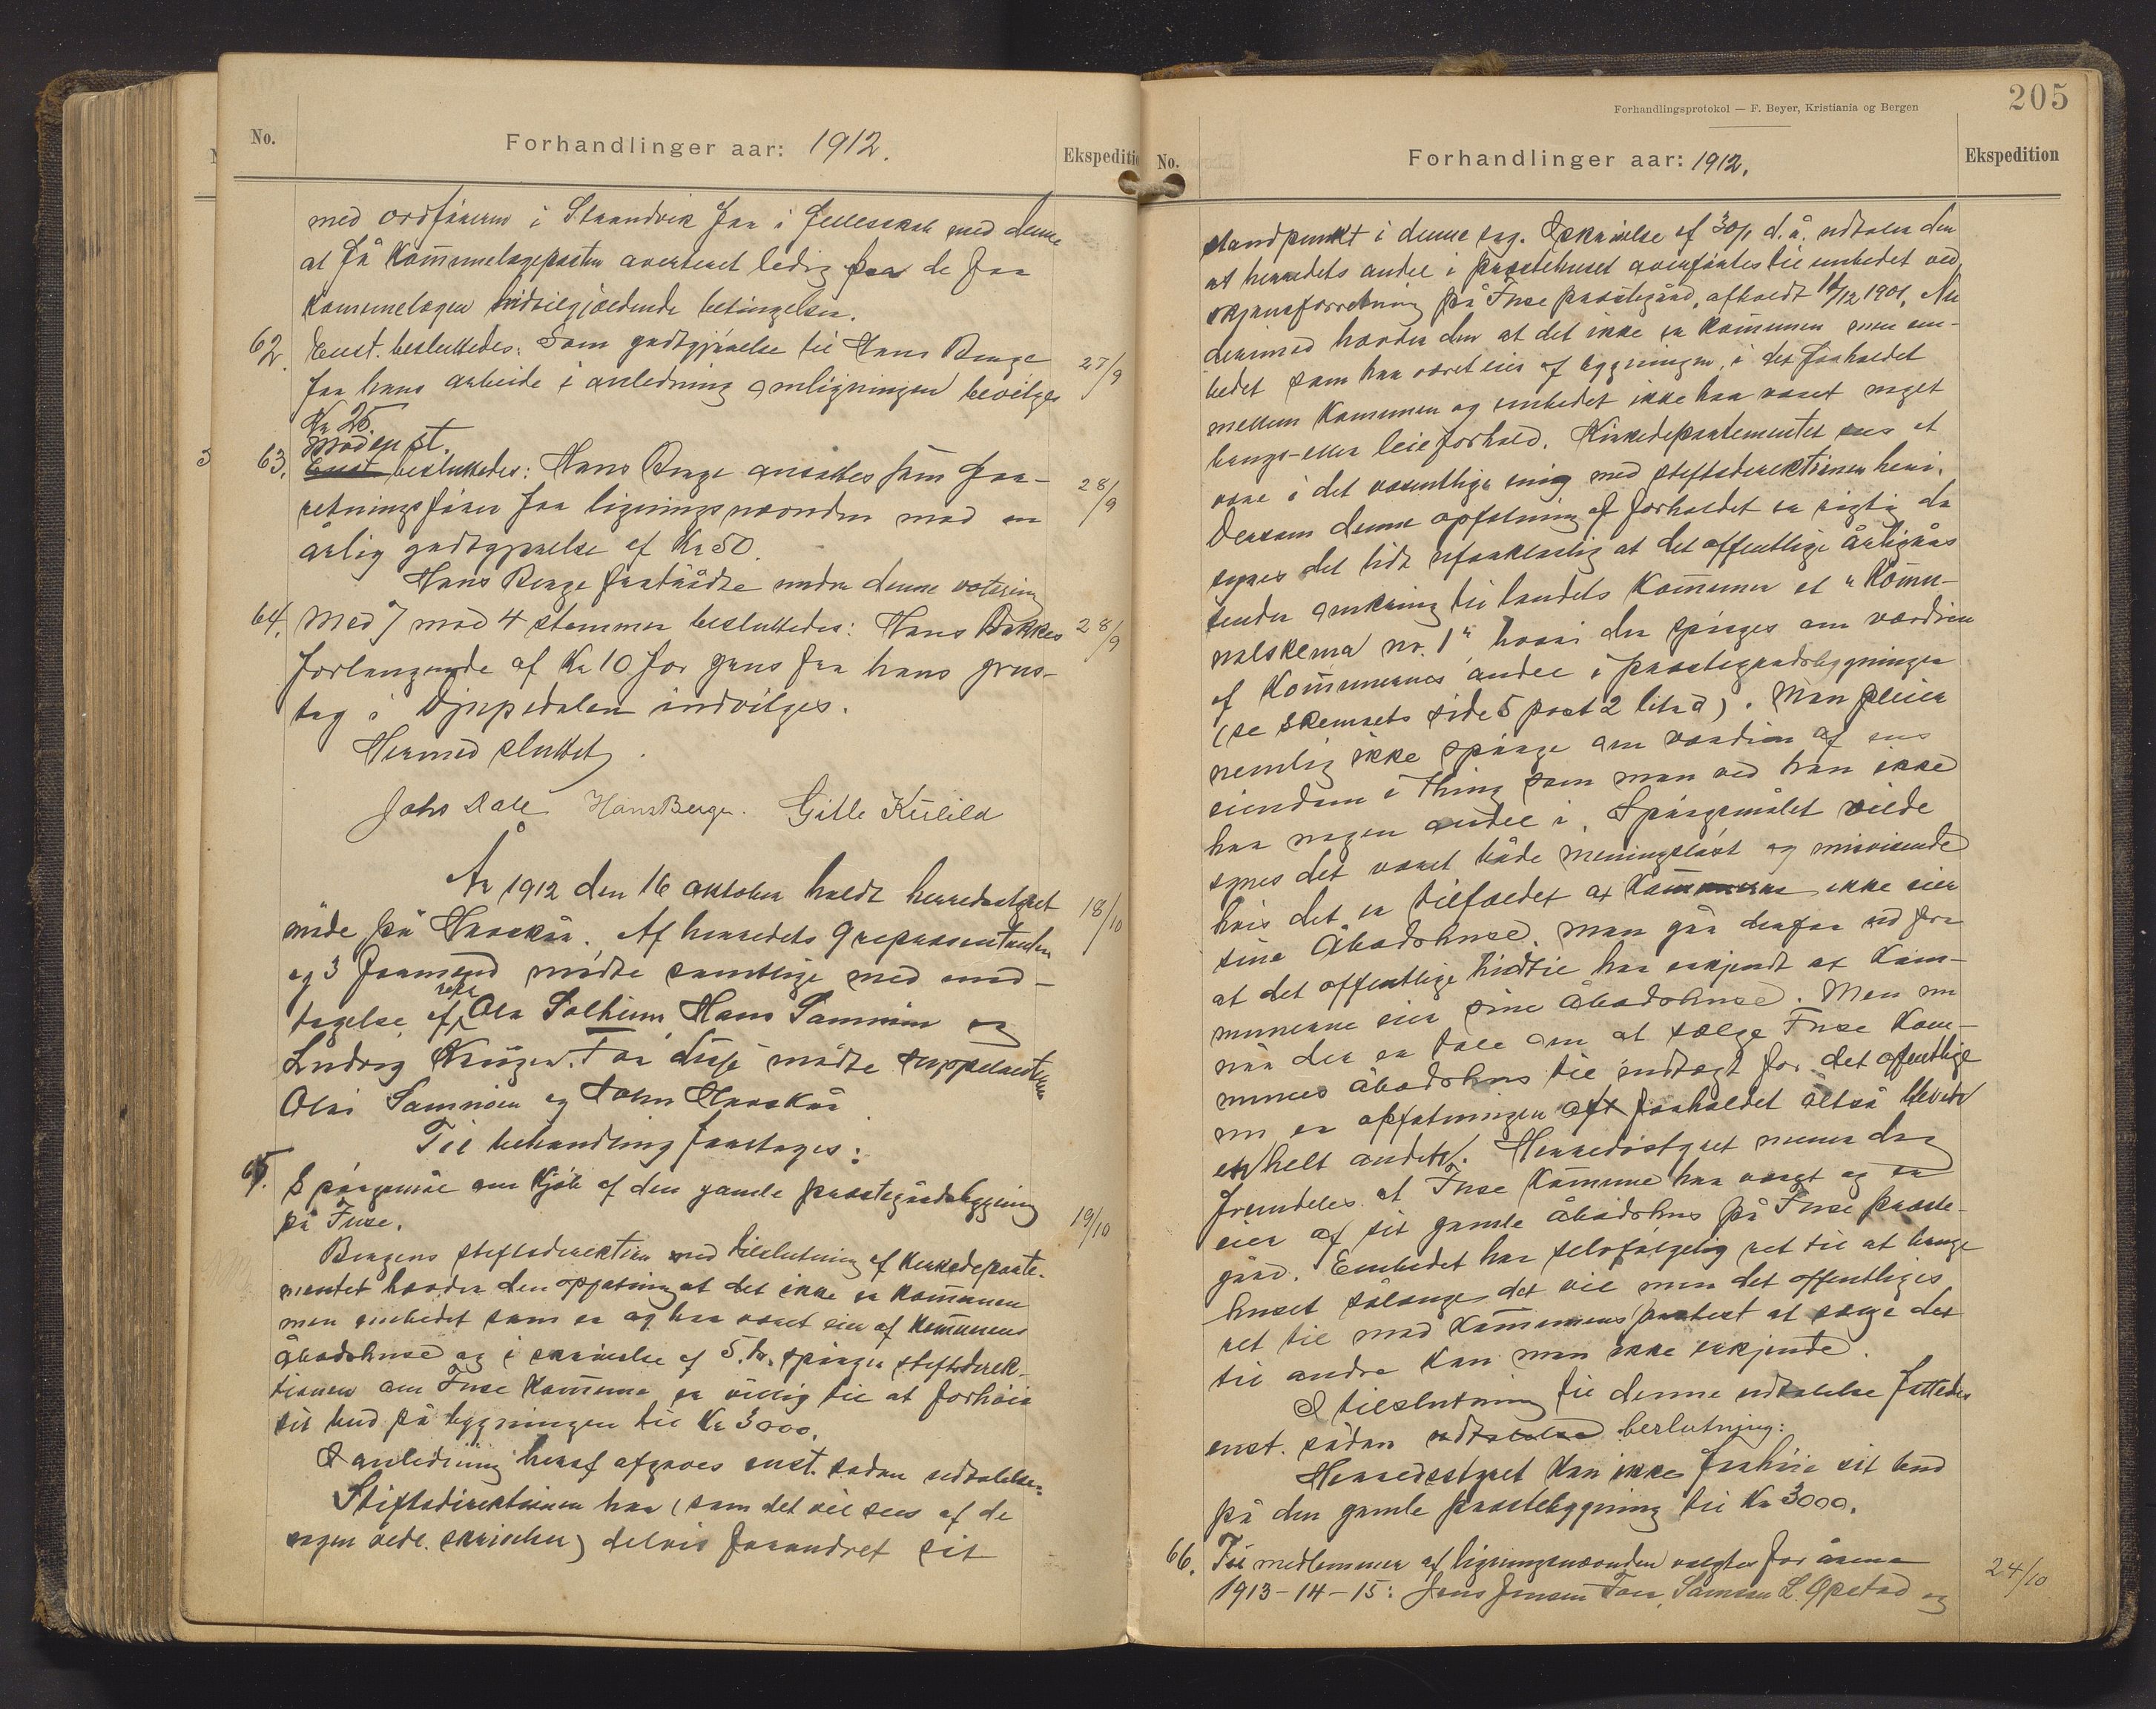 No.
Forhandlinger aar: 1912.
Ekspediti
med ordføreren i Strandvik for i fellesskab med denne
at få kommunelægeposten averteret ledig paa de for
kommunelægen hidtilgjældende betingelser.
62. Enst. besluttedes: Som godtgjørelse til Hans Berge 27/9
for hans arbeide i anledning omligningen bevilges
Kr 25.
Mod en st.
63. Enst besluttedes: Hans Berge ansættes som for- 28/9
retningsfører for ligningsnævnden mod en
årlig godtgjørelse af Kr 50.
Hans Berge fratrådte under denne votering
64. Med 7 mod 4 stemmer besluttedes: Hans Bakkes 28/9
forlangende af Kr 10 for grus fra hans grus-
tag i Djupedalen indvilges.
Hermed sluttet.
Johs Dale Hans Berge. Gitle Kulild
År 1912 den 16 oktober holdt herredsstyret 18/10
møde på Havskår. Af herredets 9 repræsentanter
og 3 formænd mødte samtlige med und-
tagelse af repr Ola Solheim Hans Samnøen og
Ludvig Krüger. For disse mødte suppleanterne
Olai Samnøen og John Havskår.
Til behandling foretoges:
65. Spørgsmål om kjøb af den gamle præstegårdsbygning
på Fuse. 19/10
Bergens stiftsdirektion med tilslutning af Kirkedeparte-
mentet hævder den opfatning at det ikke er kommunen
men embedet som er og har været eier af kommunens
åbodshuse og i skrivelse af 5. ds. spørger stiftsdirek-
tionen om Fuse kommune er villig til at forhøie
sit bud på bygningen til Kr 3000.
I anledning heraf afgaves enst. sådan udtalelse:
Stiftsdirektionen har (som det vil sees af de
sagen vedl. skrivelser) delvis forandret sit
Forhandlingsprotokol — F. Beyer, Kristiania og Bergen
205
No.
Forhandlinger aar: 1912.
Ekspedition
standpunkt i denne sag. I skrivelse af 30/1 d. å. udtaler den
at herredets andel i præstehuset overførtes til embedet ved
skjønsforretning på Fuse præstegård, afholdt 14/12 1901. Nu
derimod hævder den at det ikke er kommunen men em-
bedet som har været eier af bygningen, i det forholdet
mellem kommunen og embedet ikke har været noget
brugs- eller leieforhold. Kirkedepartementet sees at
være i det væsentlige enig med stiftsdirektionen heri.
Dersom denne opfatning af forholdet er rigtig da
synes det lidt uforklarlig at det offentlige årligårs
sender omkring til landets kommuner et "Kommu-
nalskema nr. 1" hvori der spørges om værdien
af kommunernes andel i præstegårdsbygninger
(se skemaets side 5 post 2 litra a). Man pleier
nemlig ikke spørge om værdien af ens
eiendom i thing som man ved han ikke
har nogen andel i. Spørgsmålet vilde
synes det været både meningsløst og misvisende
hvis det er tilfældet at kommunerne ikke eier
sine åbodshuse. Man går derfor ud fra
at det offentlige hidtil har erkjendt at kom-
munerne eier sine åbodshuse. Men nu
når der er tale om at sælge Fuse kom-
munes åbodshus til indtægt for det offentlige
nu er opfatningen af forholdet altså blevet
et helt andet. Herredsstyret mener dog
fremdeles at Fuse kommune har været og er
eier af sit gamle åbodshus på Fuse præste-
gård. Embedet har selvfølgelig ret til at bruge
huset sålænge det vil men det offentliges
ret til mod kommunens protest at sælge det
til andre kan man ikke erkjende.
I tilslutning til denne udtalelse fattedes
enst. sådan udtalelse beslutning:
Herredsstyret kan ikke forhøie sit bud
på den gamle præstebygning til Kr 3000.
66. Til medlemmer af ligningsnævnden valgtes for årene 24/10
1913-14-15: Jens Jensen Tøn, Samson L. Opstad og